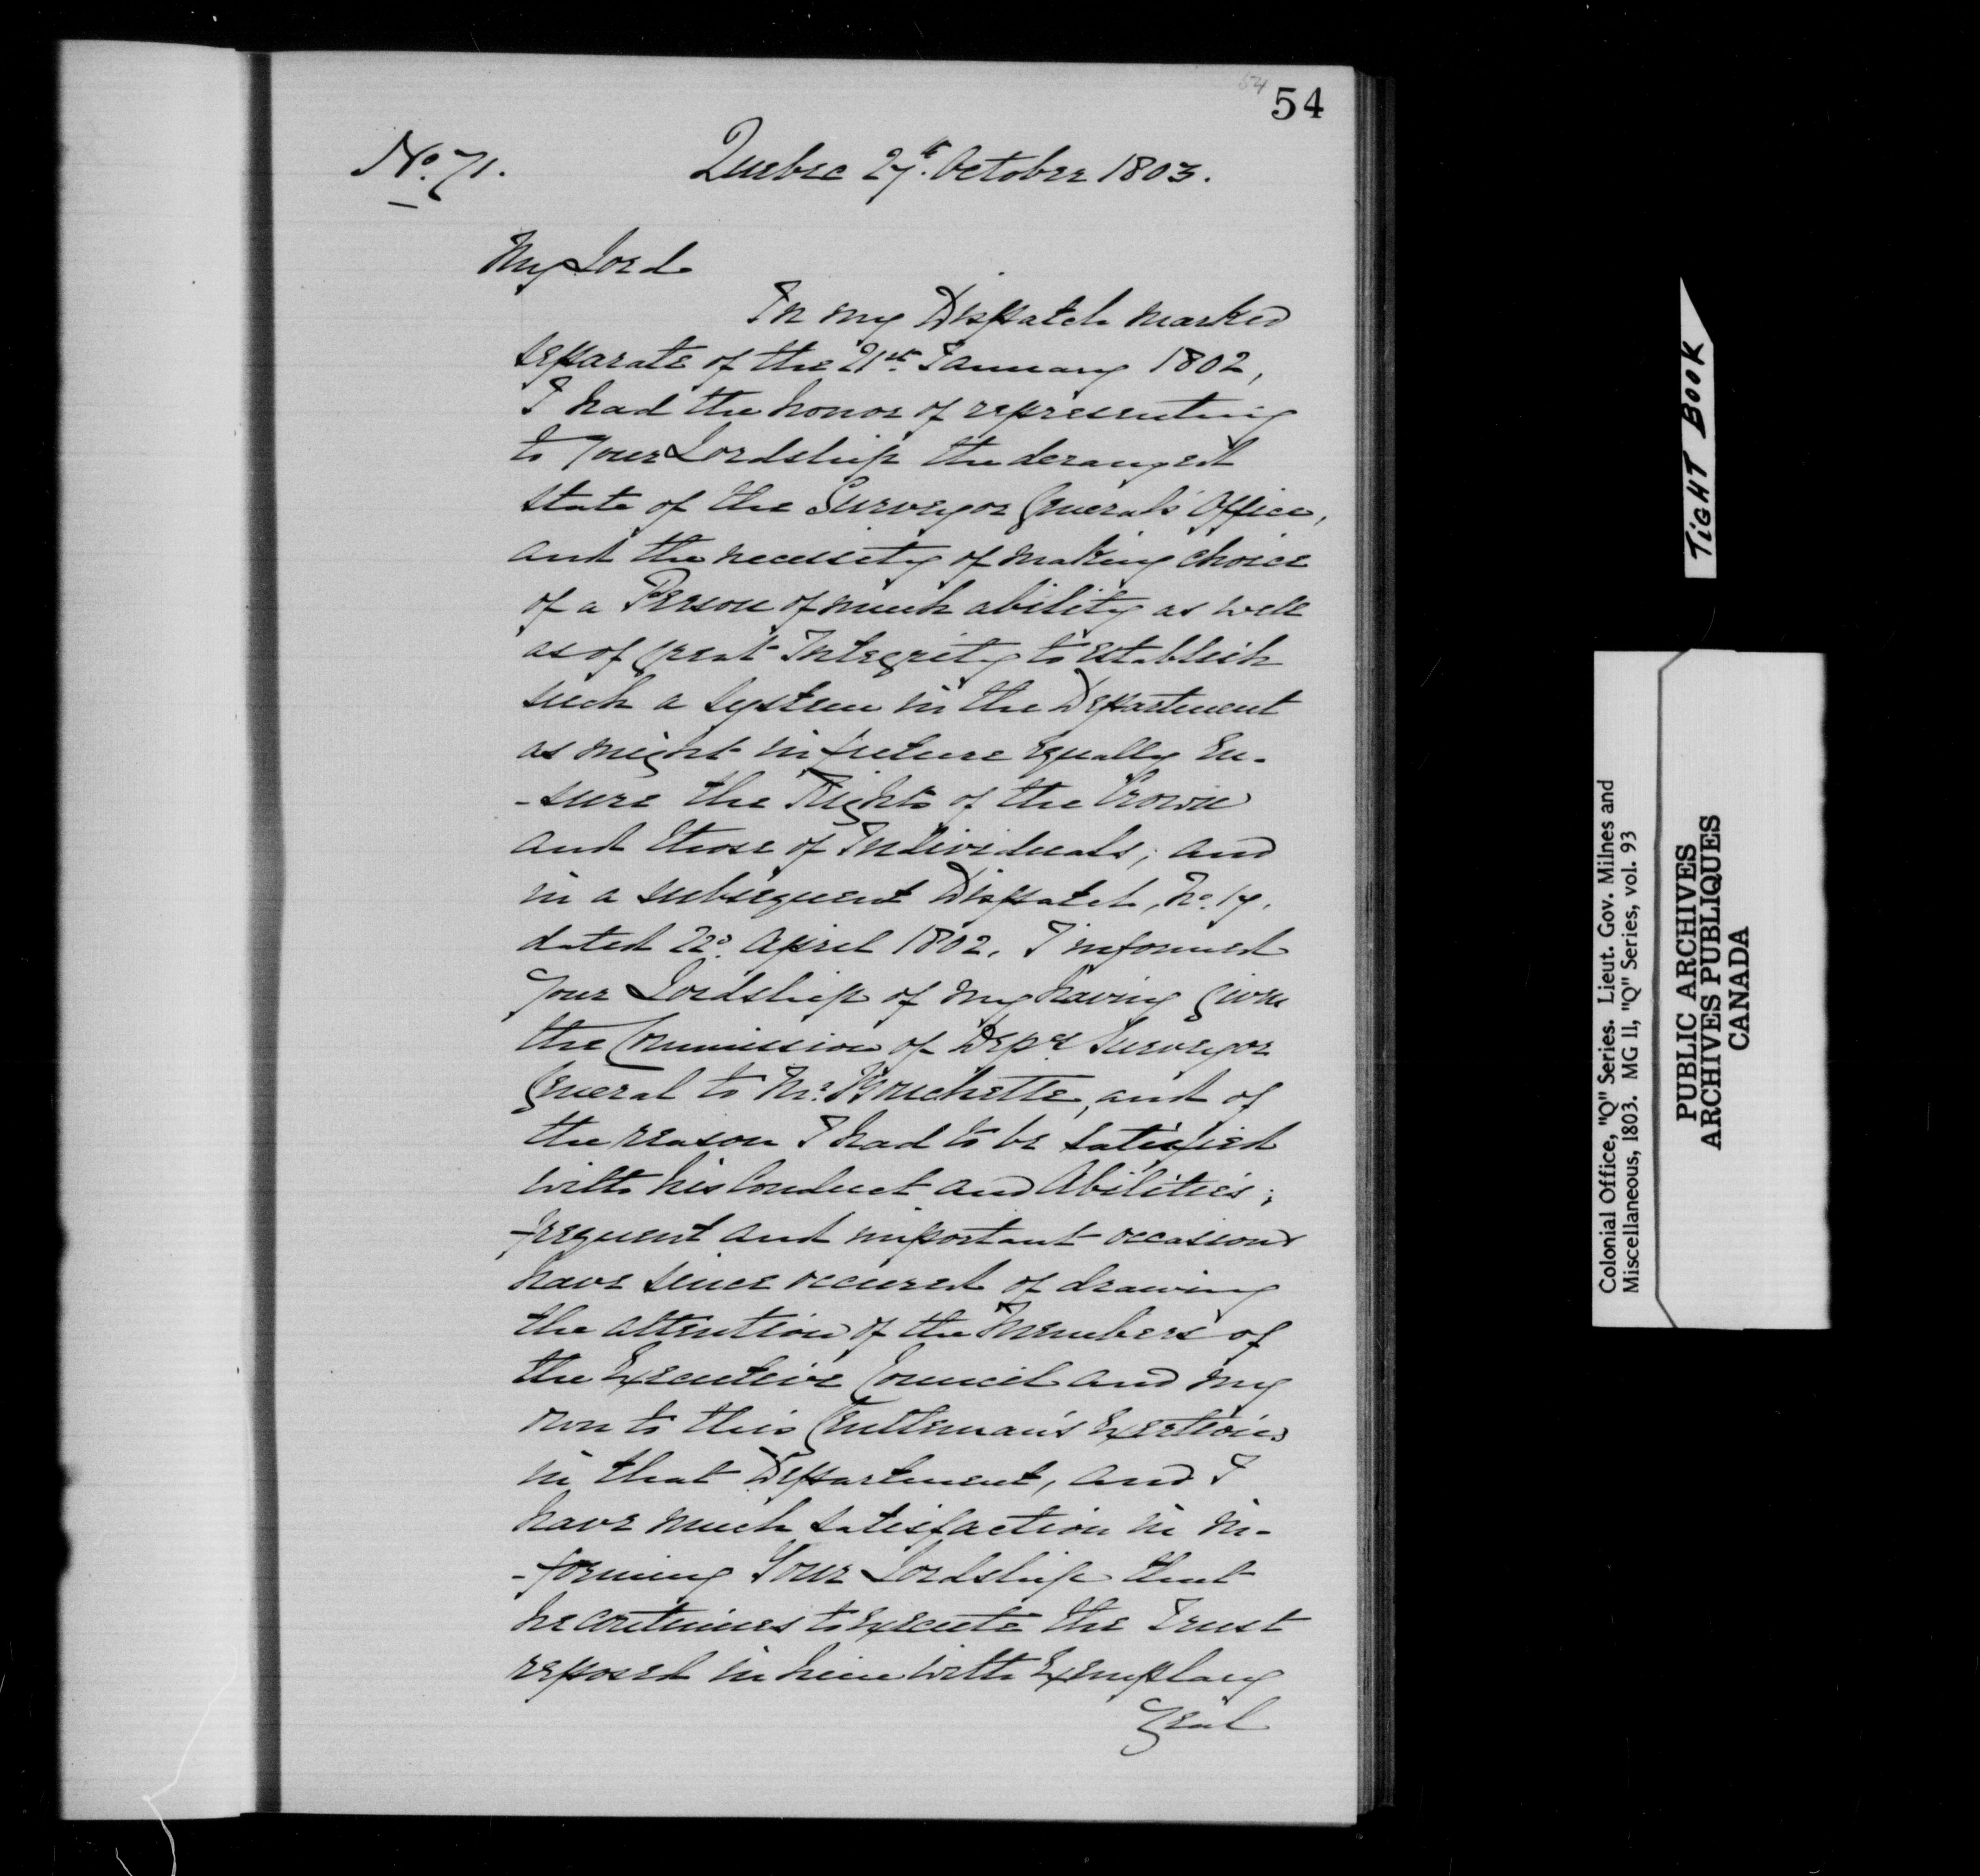 54
54
No. 71.
Quebec 27th. October 1803.
My Lord
In my Dispatch marked
separate of the 21st. January 1802,
I had the honor of representing
to Your Lordship the deranged
state of the Surveyor General's Office,
and the necessity of making choice
of a Person of much ability as well
as of great Integrity to establish
such a system in the Department
as might in future equally en-
-sure the Rights of the Crown
and those of Individuals; and
in a subsequent Dispatch, No. 17.
dated 22d. April 1802. I informed
Your Lordship of my having given
the Commission of Depy Surveyor
General to Mr. Bouchette, and of
the reason I had to be satisfied
with his Conduct and Abilities;
frequent and important occasions
have since occured of drawing
the attention of the Members of
the Executive Council and my
own to this Gentleman's Exertions
in that Department, and I
have much satisfaction in in-
-forming Your Lordship that
he continues to execute the Trust
reposed in him with Exemplary
Zeal
TIGHT BOOK
Colonial Office, "Q" Series. Lieut. Gov. Milnes and
Miscellaneous, 1803. MG 11, "Q" Series, vol. 93
PUBLIC ARCHIVES
ARCHIVES PUBLIQUES
CANADA